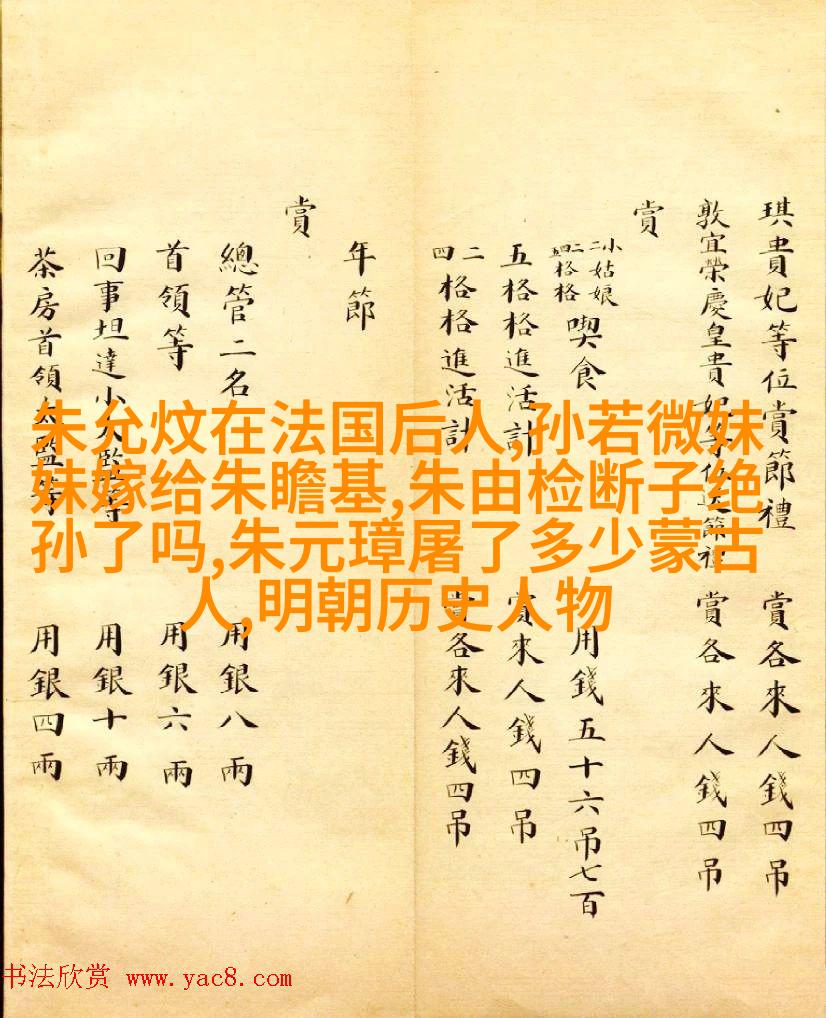 琪貴妃等位賞節禮 賞各來人錢四吊
敦宜榮慶皇貴妃等位送節禮 賞各來人錢四吊
賞
小姑娘
二二格格
四格格
喫食 用錢五十六吊七百
五格格進活計 賞來人錢四吊
二四格格進活計 賞各來人錢四吊
年節
賞
總管二名 用銀八兩
首領等 用銀六兩
回事坦達小太監等 用銀十兩
茶房首領太監等 用銀四兩
朱允炆在法国后人,孙若微妹
妹嫁给朱瞻基,朱由检断子绝
孙了吗,朱元璋屠了多少蒙古
人,明朝历史人物
书法欣赏 www.yac8.com